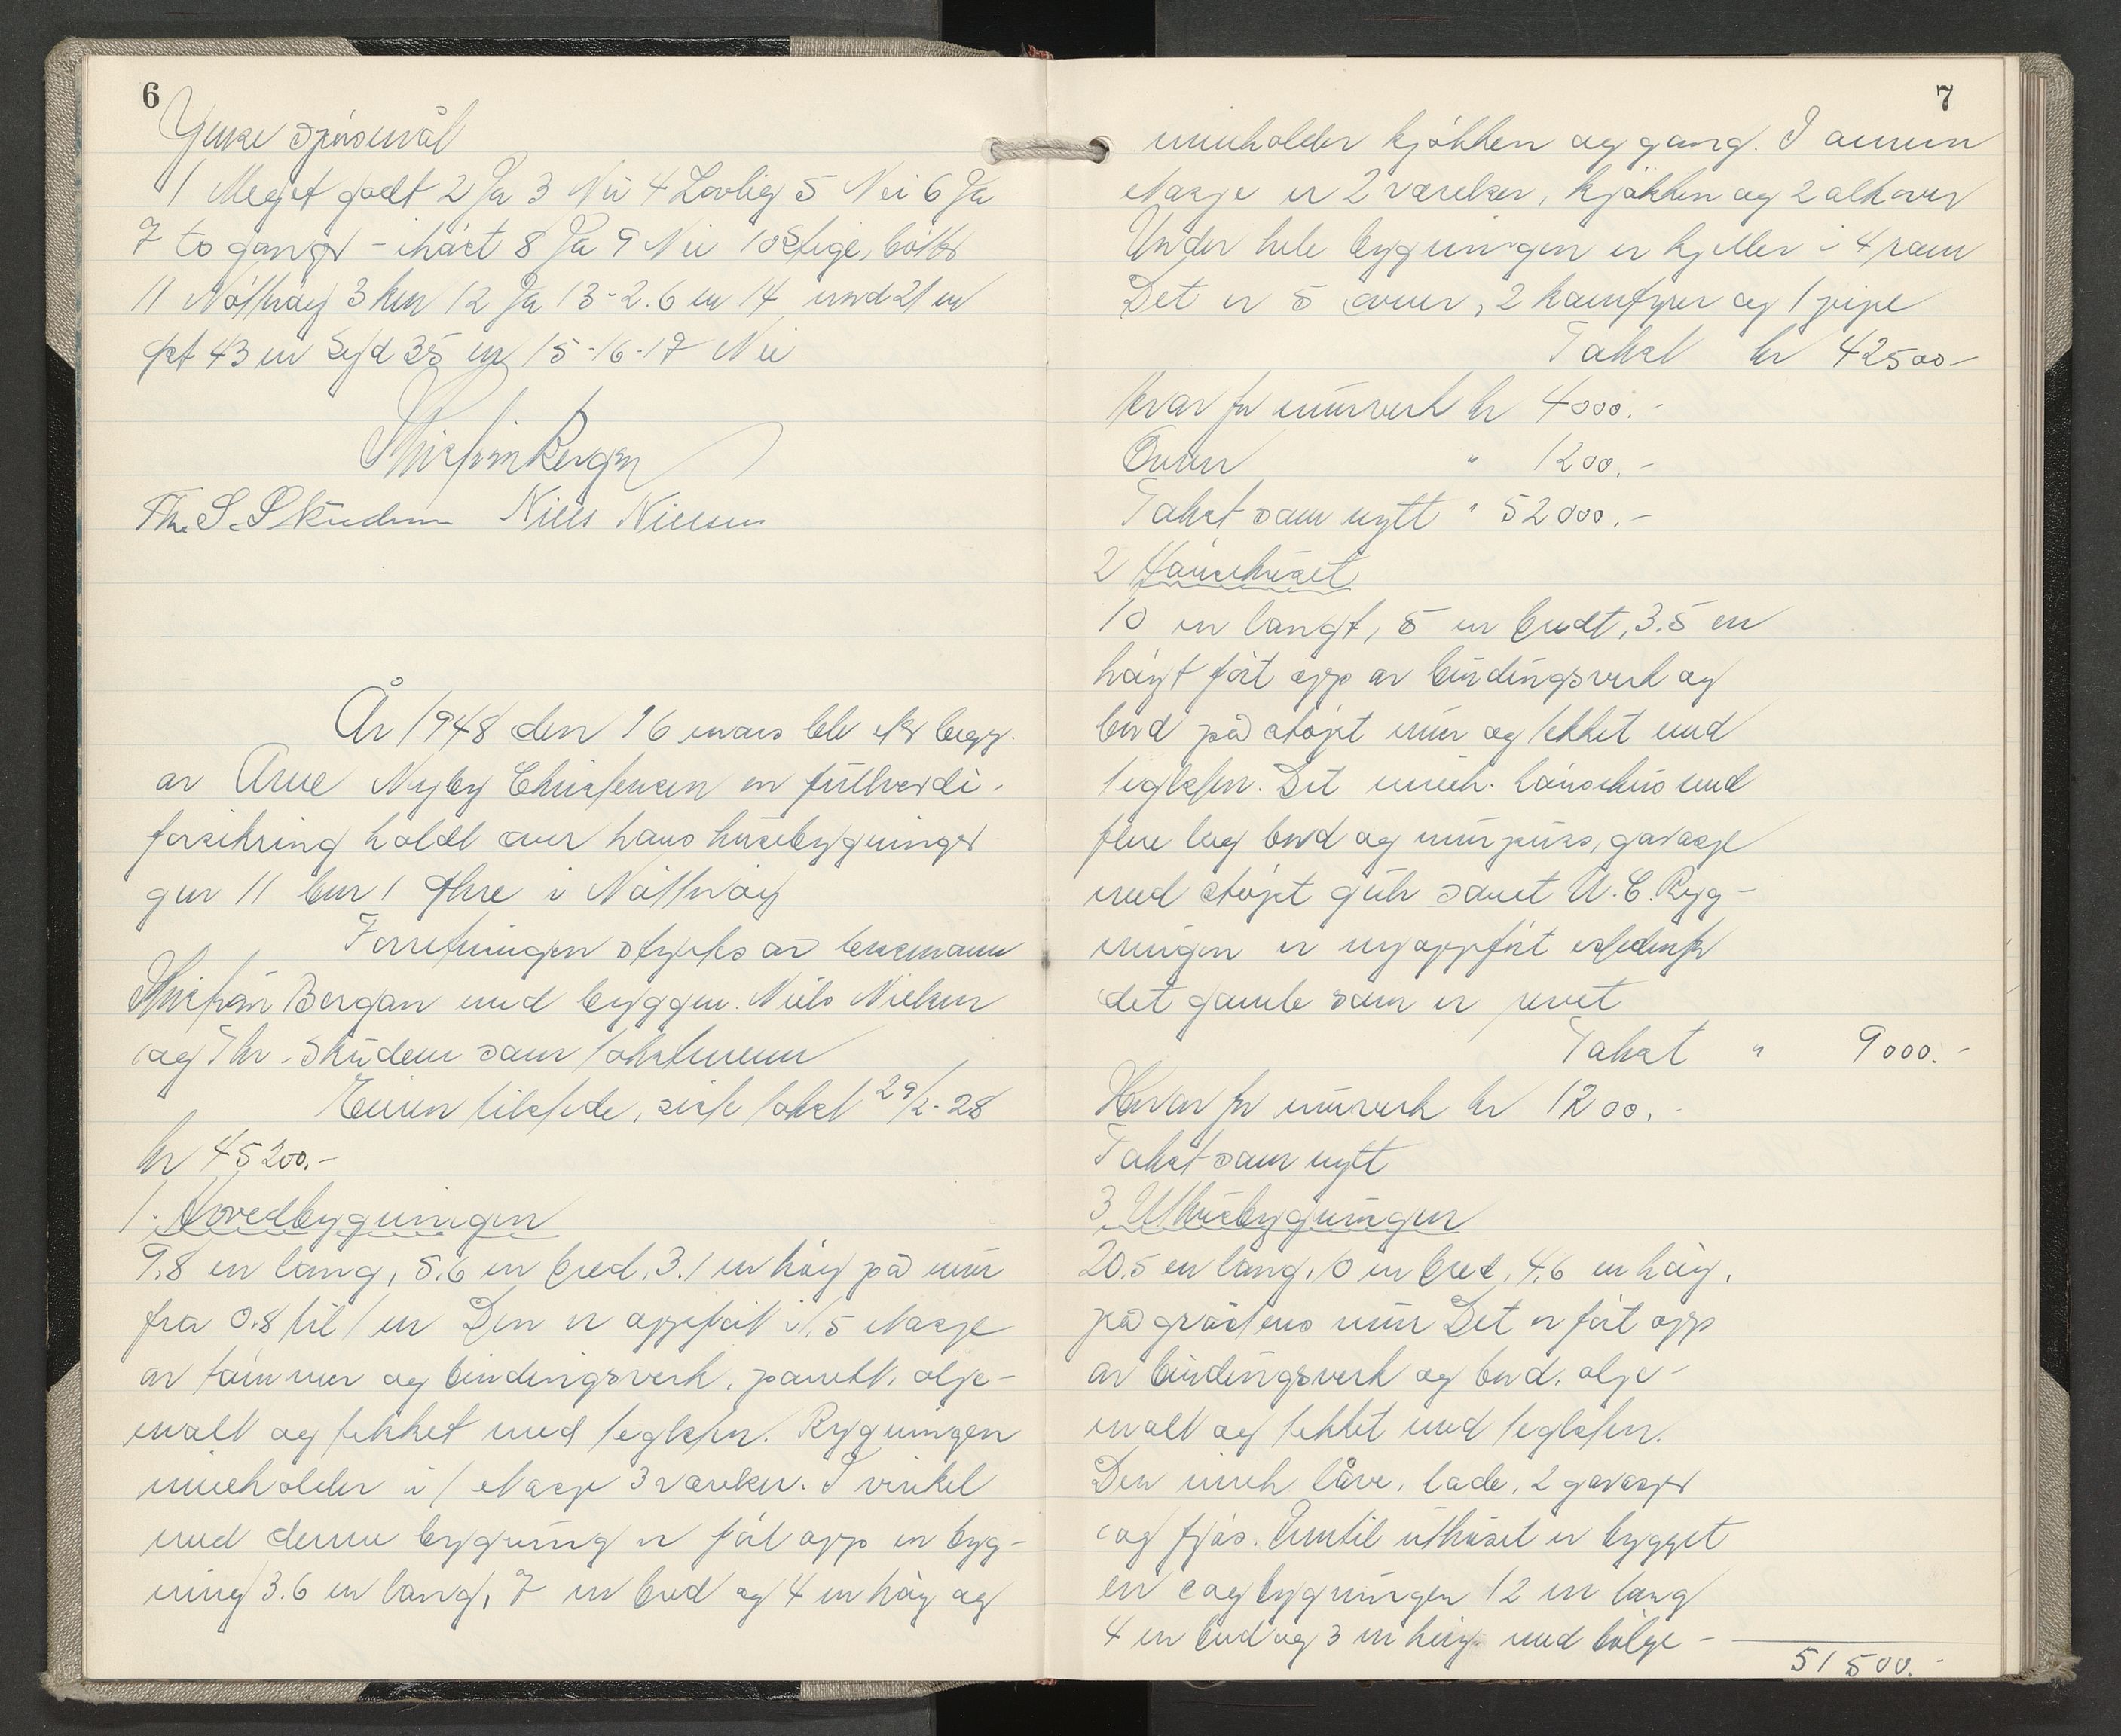 6
Ymse spörsmål
1 Meget godt 2 Ja 3 Nei 4 Lovlig 5 Nei 6 Ja
7 to ganger i häret 8 Ja 9 Nei 10 Stige, bötter
11 Nötteröy 3 km 12 Ja 13 - 2.6 m 14 nord 21 m
öst 43 m Syd 35 m 15-16-17 Nei
Kristian Bergan
Thr. S. Skudem Niels Nielsen
År 1948 den 16 mars ble etter begj.
av Arne Nyby Christensen en fullverdi-
forsikring holdt over hans husebygninger
gnr 11 bnr 1 i Nötteröy
Forretningen styrtes av lensmann
Kristian Bergan med byggm. Niels Nielsen
og Thr. Skudem som takstmenn
Eieren tilstede, siste takst 29/2-28
kr 45200.-
1. Hovedbygningen
9.8 m lang, 8.6 m bred, 3.1 m höy på mur
fra 0.8 til 1 m Den er oppfört i 1.5 etasje
av tömmer og bindingsverk, panelt, olje-
malt og tekket med teglsten. Bygningen
inneholder i 1 etasje 3 værelser. I vinkel
med denne bygning er fört opp en byg-
ning 3.6 m lang, 7 m bred og 4 m höy og
7
inneholder kjökken og gang. I annen
etasje er 2 værelser, kjökken og 2 alkover
Under hele bygningen er kjeller i 4 rom
Det er 5 ovner, 2 komfyrer og 1 pipe
Takst kr 42500-
Herav for murverk kr 4000.-
Ovner " 1200.-
Takst som nytt " 52000.-
2 Hönsehuset
10 m langt, 5 m bredt, 3.5 m
höyt fört opp av bindingsverk og
bord på stöpt mur og tekket med
teglsten. Det inneh. hönsehus med
flere lag bord og murpuss, garasje
med stöpt gulv samt W.C. Byg-
ningen er nyoppfört istedenfor
det gamle som er revet
Takst " 9000.-
Herav for murverk kr 1200.-
Takst som nytt
3 Uthusbygningen
20.5 m lang, 10 m bred, 4.6 m höy,
på gråstens mur Det er fört opp
av bindingsverk og bord, olje-
malt og tekket med teglsten.
Den inneh låve, lade, 2 garasjer
og fjös. Inntil uthuset er bygget
en bygningen 12 m lang
4 m bred og 3 m höy med bölge-
51500.-